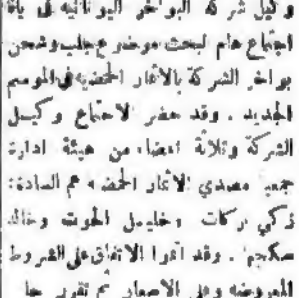 وكيل شركة البواخر اليونانية في يافا
اجتماع هام لبحث موضوع جلب وشحن
بواخر الشركة بالاثمار الحمضية في الموسم
الجديد . وقد حضر الاجتماع وكيل
الشركة وثلاثة اعضاء من هيئة ادارة
جمعية مصدري الاثمار الحمضية هم السادة :
زكي بركات وخليل الحوت وخالد
سكجها . وقد اقروا الاتفاق على الشروط
المعروضة وعلى الاسعار ثم تقرر